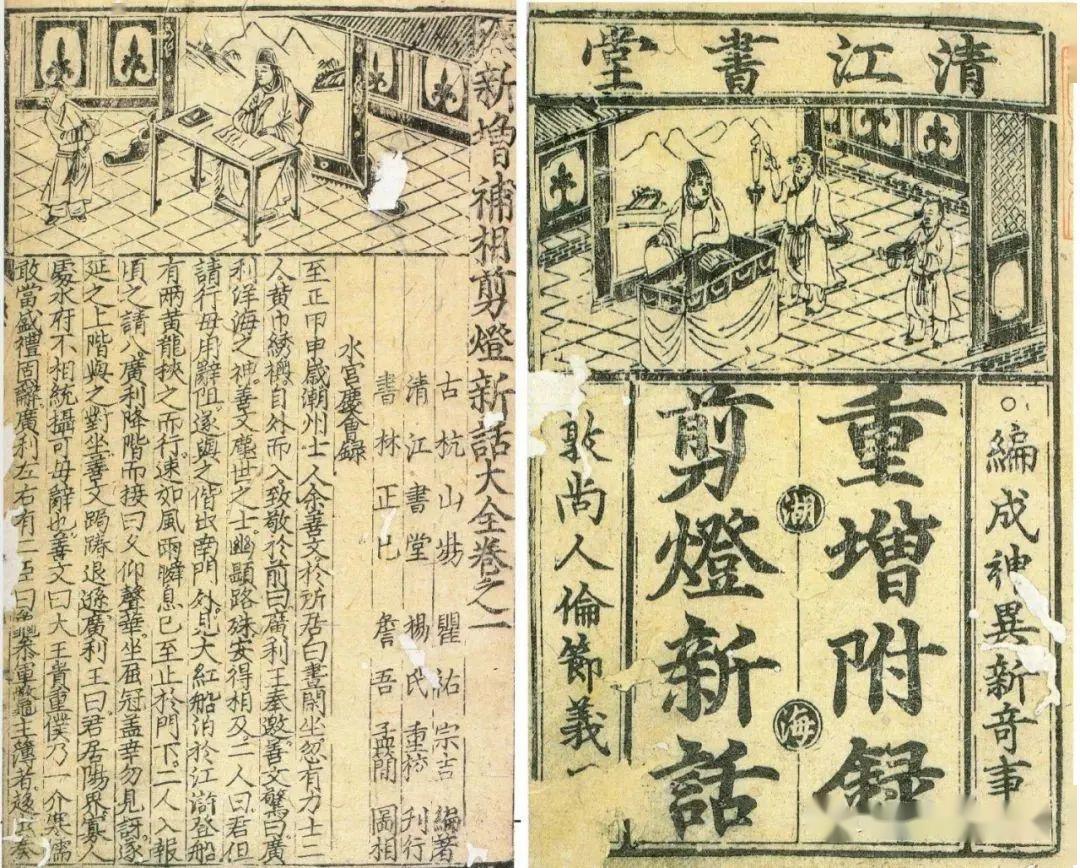 清江書堂
編成神異新奇事
重增附錄
湖海
剪燈新話
敦尚人倫節義
新增補相剪燈新話大全卷之一
古杭山陽瞿祐宗吉編著
清江書堂楊氏重校刊行
書林正巳詹吾孟簡圖相
水宮慶會錄
至正甲申歲潮州士人余善文於所居白晝閑坐忽有力士二
人黃巾綉襖自外而入致敬於前曰廣利王奉邀善文驚曰廣
利洋海之神善文塵世之士幽顯路殊安得相及二人曰君但
請行毋用辭阻遂與之偕出南門外見大紅船泊於江滸登船
有兩黃龍挾之而行速如風雨瞬息已至止於門下二人入報
頃之請入廣利降階而接曰久仰聲華坐屈冠盖幸勿見訝遂
延之上階與之對坐善文跼蹐退遜廣利王曰君居陽界寡人
處水府不相統攝可毋辭也善文曰大王貴重僕乃一介寒儒
敢當盛禮固辭廣利左右有二臣曰黿參軍鱉主簿者趨出奏